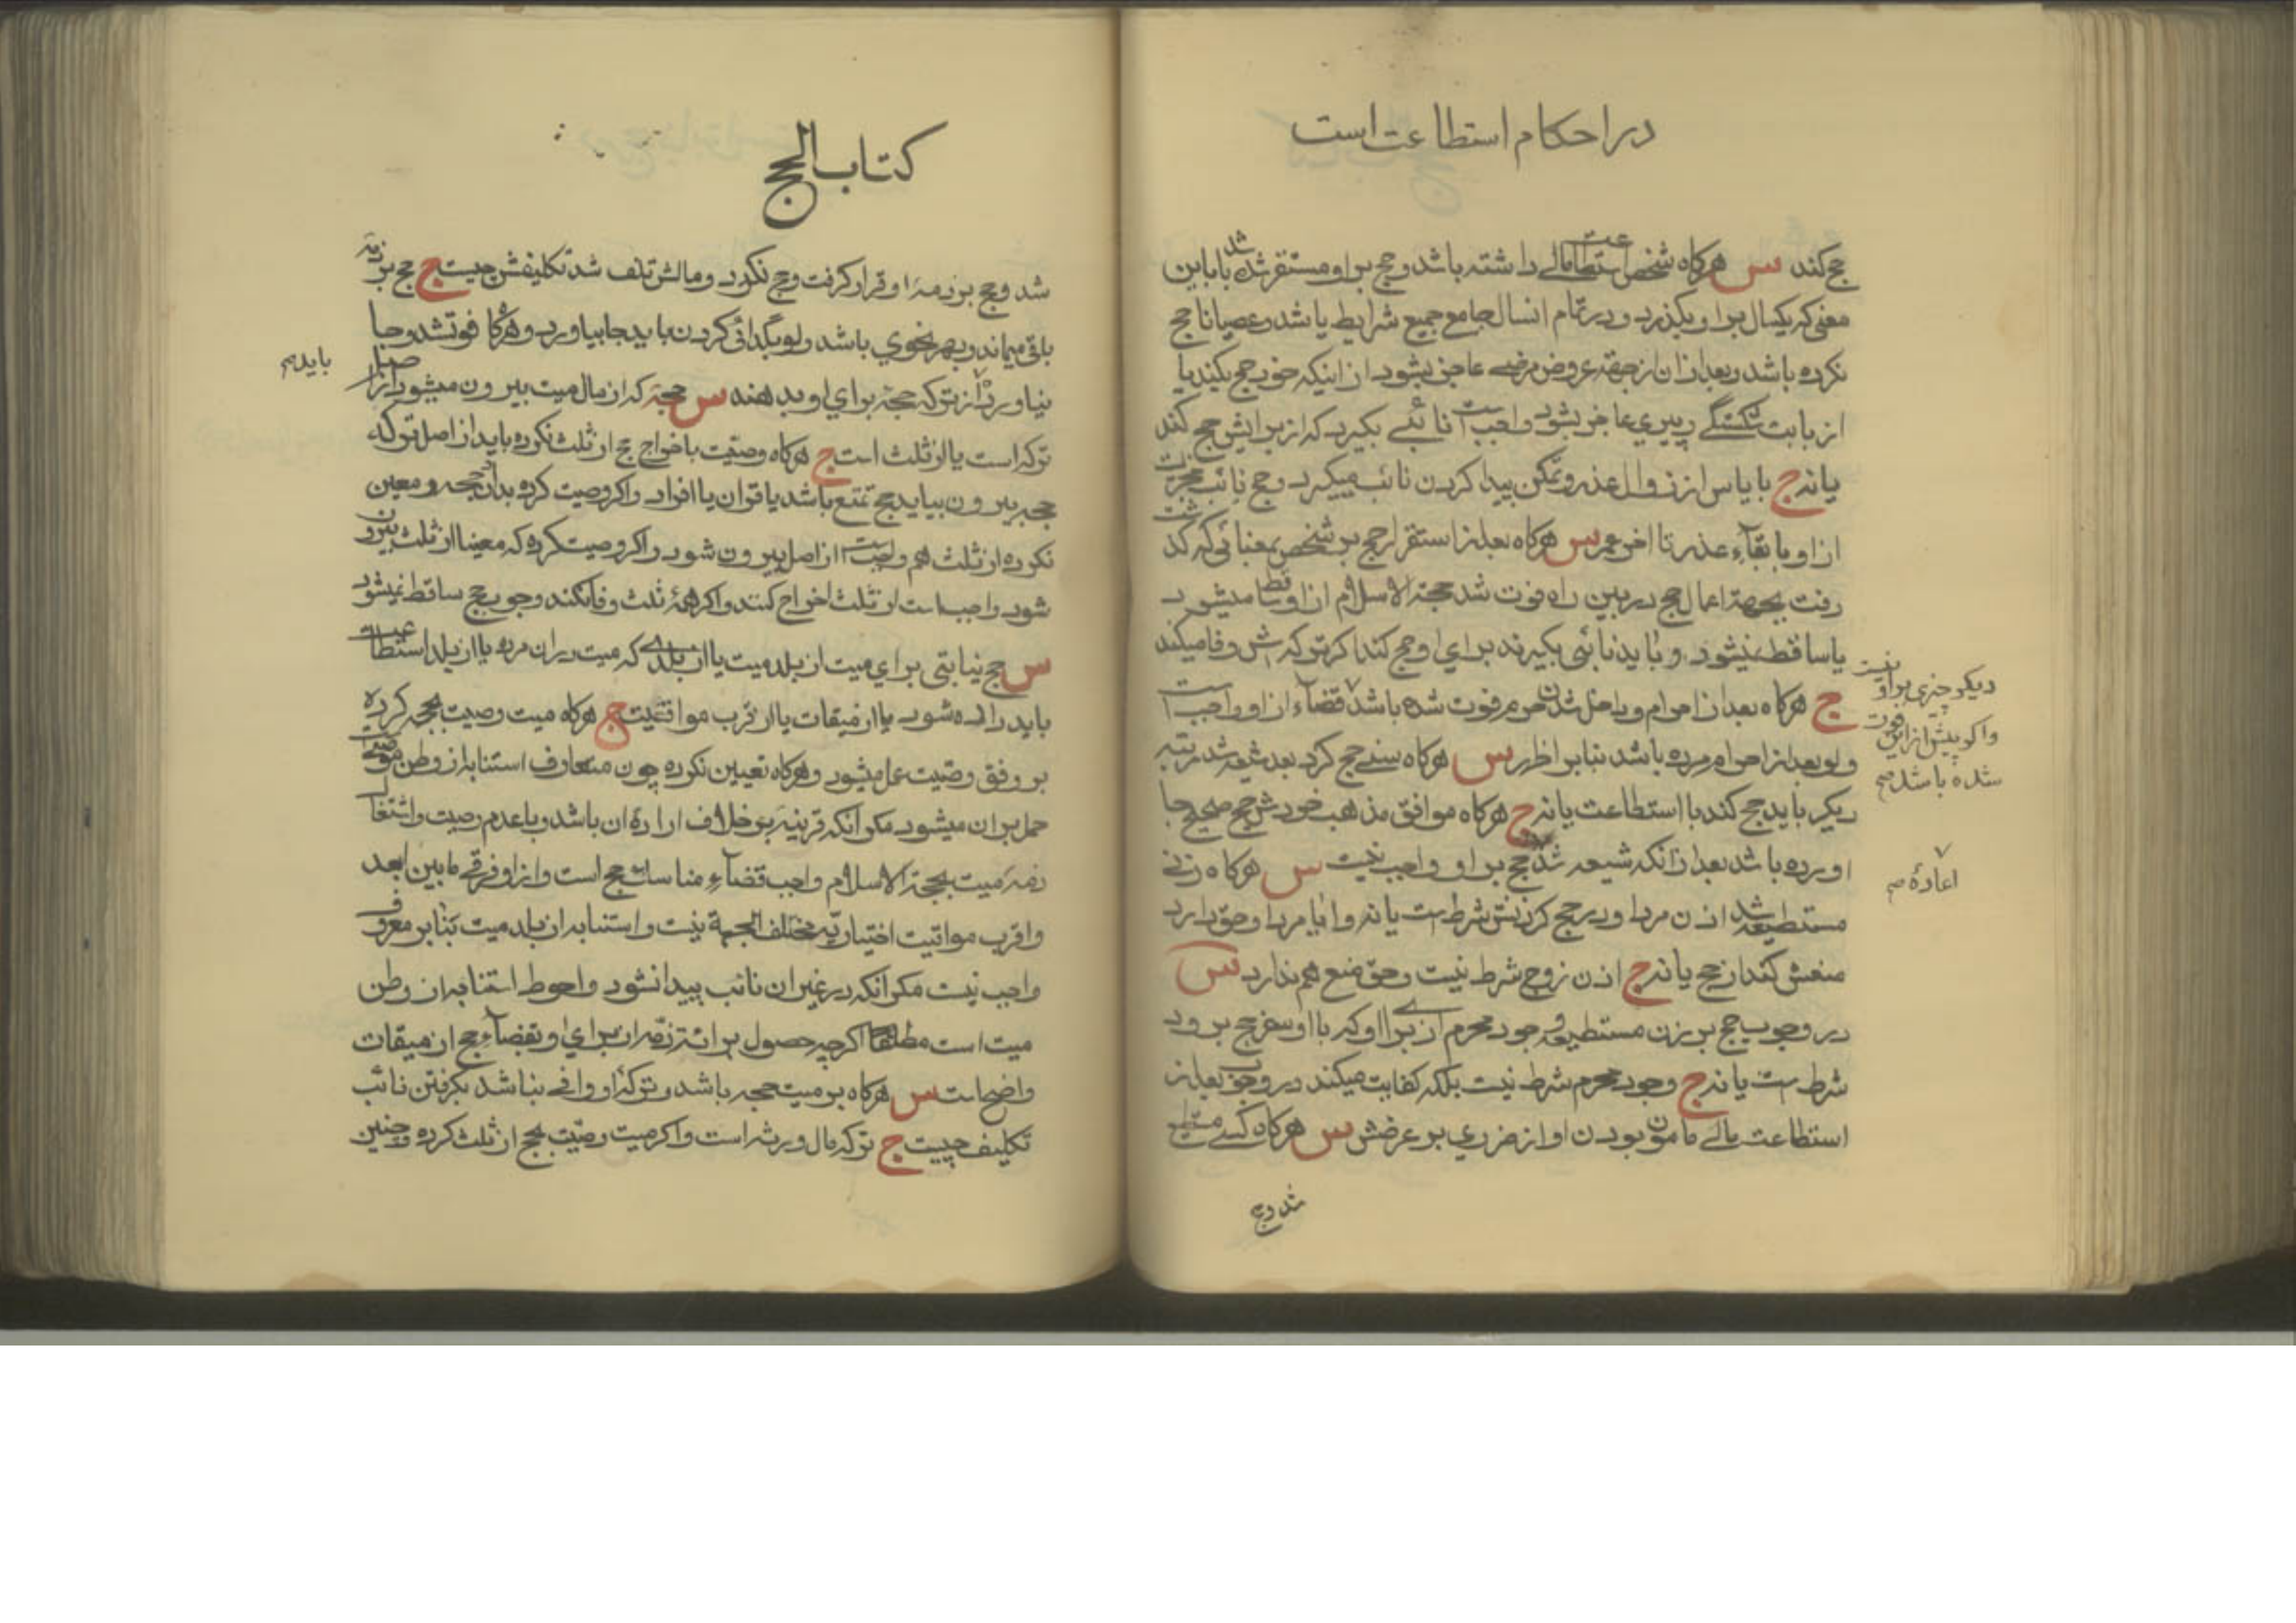 در احکام استطاعت است
حج کند س هرکاه شخص استطاعت مالی داشته باشد و حج بر او مستقر شده باشد باین
معنی که یکسال بر او بکذرد و در تمام انسال جامع جمیع شرایط باشد و عصیانا حج
نکرده باشد و بعد از ان از جهة عروض مرضی عاجز بشود از اینکه خود حج بکند یا
از بابت شکستکی و پیری عاجز بشود واجب است نائبی بکیرد که از برایش حج کند
یا نه ج با یاس از زوال عذر و تمکن پیدا کردن نائب میکیرد و حج نائب مجزیست
از او با بقاء عذر تا اخر عمر س هرکاه بعد از استقرار حج بر شخص بمعنائی که کذشت
رفت بجهة اعمال حج در بین راه فوت شد حجة الاسلام از او ساقط میشود
یا ساقط نمیشود و باید نائبی بکیرند برای او حج کند اکر ترکه اش وفا میکند
ج هرکاه بعد از احرام و داخل شدن حرم فوت شده باشد قضاء از او واجب است
دیکر چیزی بر او نیست
واکر پیش از این فوت
شده باشد صح
ولو بعد از احرام مرده باشد بنابر اظهر س هرکاه سنی حج کرد بعد شیعه شد مرتبه
دیکر باید حج کند با استطاعت یا نه ج هرکاه موافق مذهب خودش حج صحیح بجا
اورده باشد بعد از انکه شیعه شد حج بر او واجب نیست س هرکاه زنی
اعادۀ صح
مستطیعه شد اذن مرد او در حج کردنش شرطست یا نه و ایا مرد او حق دارد
منعش کند از حج یا نه ج اذن زوج شرط نیست و حق منع هم ندارد س
در وجوب حج بر زن مستطیعه وجود محرم از برای او که با او سفر حج برود
شرطست یا نه ج وجود محرم شرط نیست بلکه کفایت میکند در وجوب بعد از
استطاعت مالی مامون بودن او از ضرری بر عرضش س هرکاه کسی مستطیع
شد و حج
کتاب الحج
شد و حج بر ذمۀ او قرار کرفت و حج نکرد و مالش تلف شد تکلیفش چیست ج حج بر ذمه
باقی میماند و بهر نحوی باشد ولو بکدائی کردن باید بجا بیاورد و هرکاه فوت شد و بجا
نیاورد از ترکه حجة برای او بدهند س حجۀ که از مال میت بیرون میشود از اصل
باید صح
ترکه است یا از ثلث است ج هرکاه وصیت باخراج حج از ثلث نکرده باید از اصل ترکه
حجه بیرون بیاید حج تمتع باشد یا قران یا افراد و اکر وصیت کرده بدادن حجه و معین
نکرده از ثلث هم واجب است از اصل بیرون شود و اکر وصیت کرده که معینا از ثلث بیرون
شود واجب است از ثلث اخراج کنند و اکر همۀ ثلث وفا نکند وجوب حج ساقط نمیشود
س حج نیابتی برای میت از بلد میت یا از بلدی که میت در ان مرده یا از بلد استطاعت
باید داده شود یا از میقات یا از اقرب مواقیت ج هرکاه میت وصیت بحجه کرده
بر وفق وصیت عمل میشود و هرکاه تعیین نکرده چون متعارف استنابه از وطن موصیست
حمل بر ان میشود مکر انکه قرینۀ بر خلاف ارادۀ ان باشد و با عدم وصیت و اشتغال
ذمۀ میت بحجة الاسلام واجب قضاء مناسک حج است و از او فرقی ما بین ابعد
و اقرب مواقیت اختیاریه مختلف الجهة نیست و استنابه از بلد میت بنابر معروف
واجب نیست مکر انکه در غیر ان نائب پیدا نشود و احوط استنابه از وطن
میت است مطلقا اکرچه حصول برائت ذمه از برای او بقضاء حج از میقات
واضح است س هرکاه بر میت حجه باشد و ترکۀ او وافی نباشد بکرفتن نائب
تکلیف چیست ج ترکه مال ورثه است و اکر میت وصیت بحج از ثلث کرده و چنین